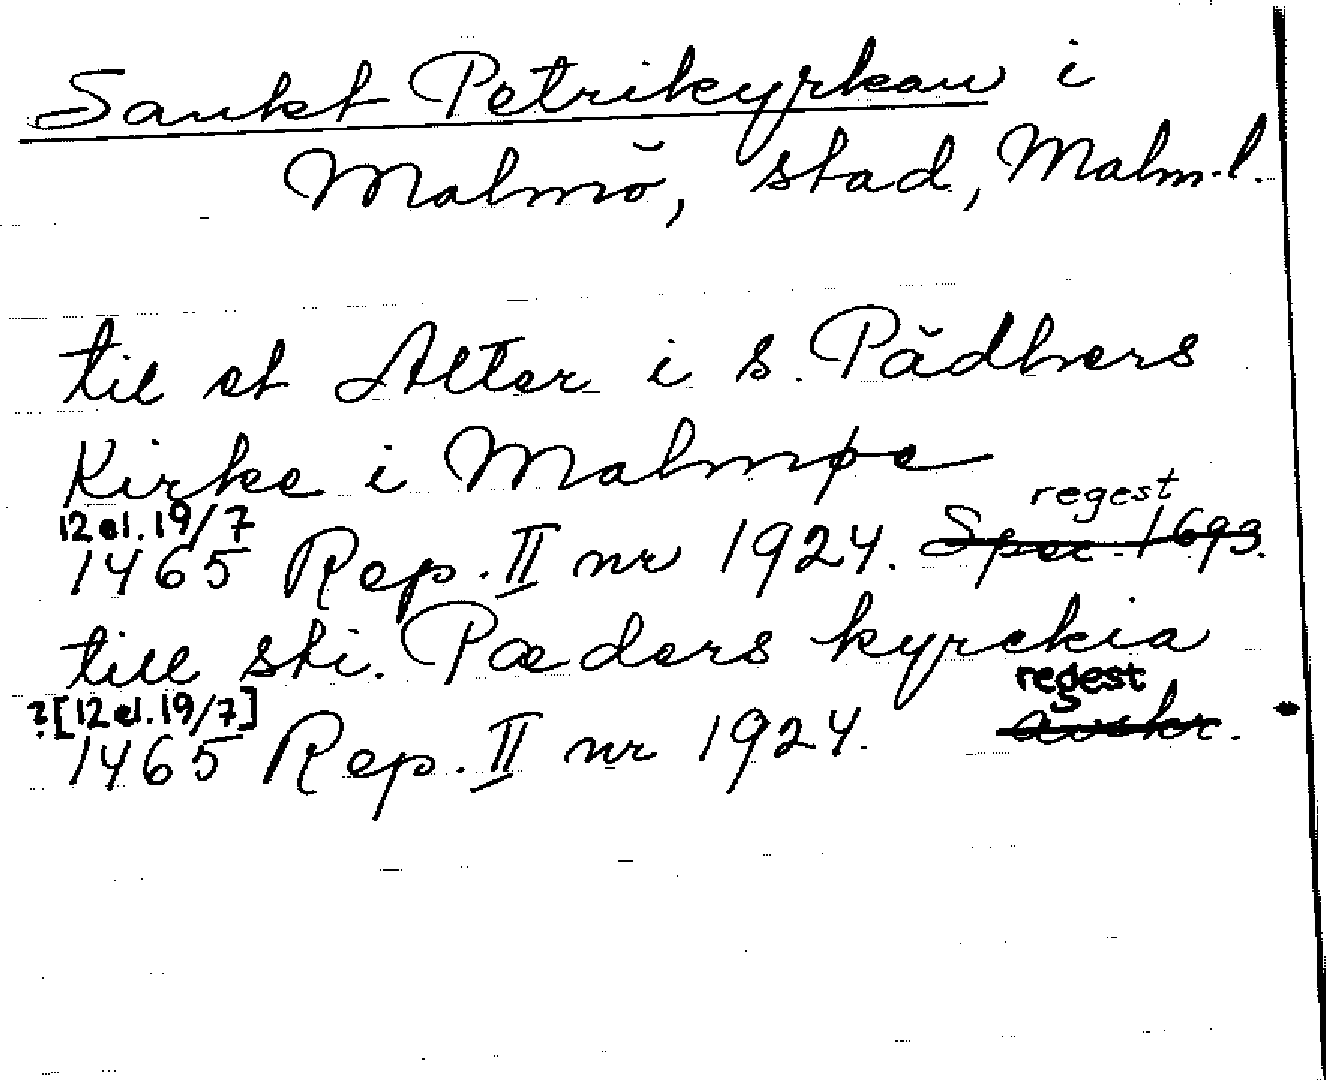 Sankt Petrikyrkan i
Malmö, stad, Malm.l.
til et Alter i S. Pădhers
Kirke i Malmøe
regest
12 el. 19/7
1465 Rep. II nr 1924. Spec. 1693.
till sti. Pæders kyrckia
regest
?[12 el. 19/7]
1465 Rep. II nr 1924. avskr.